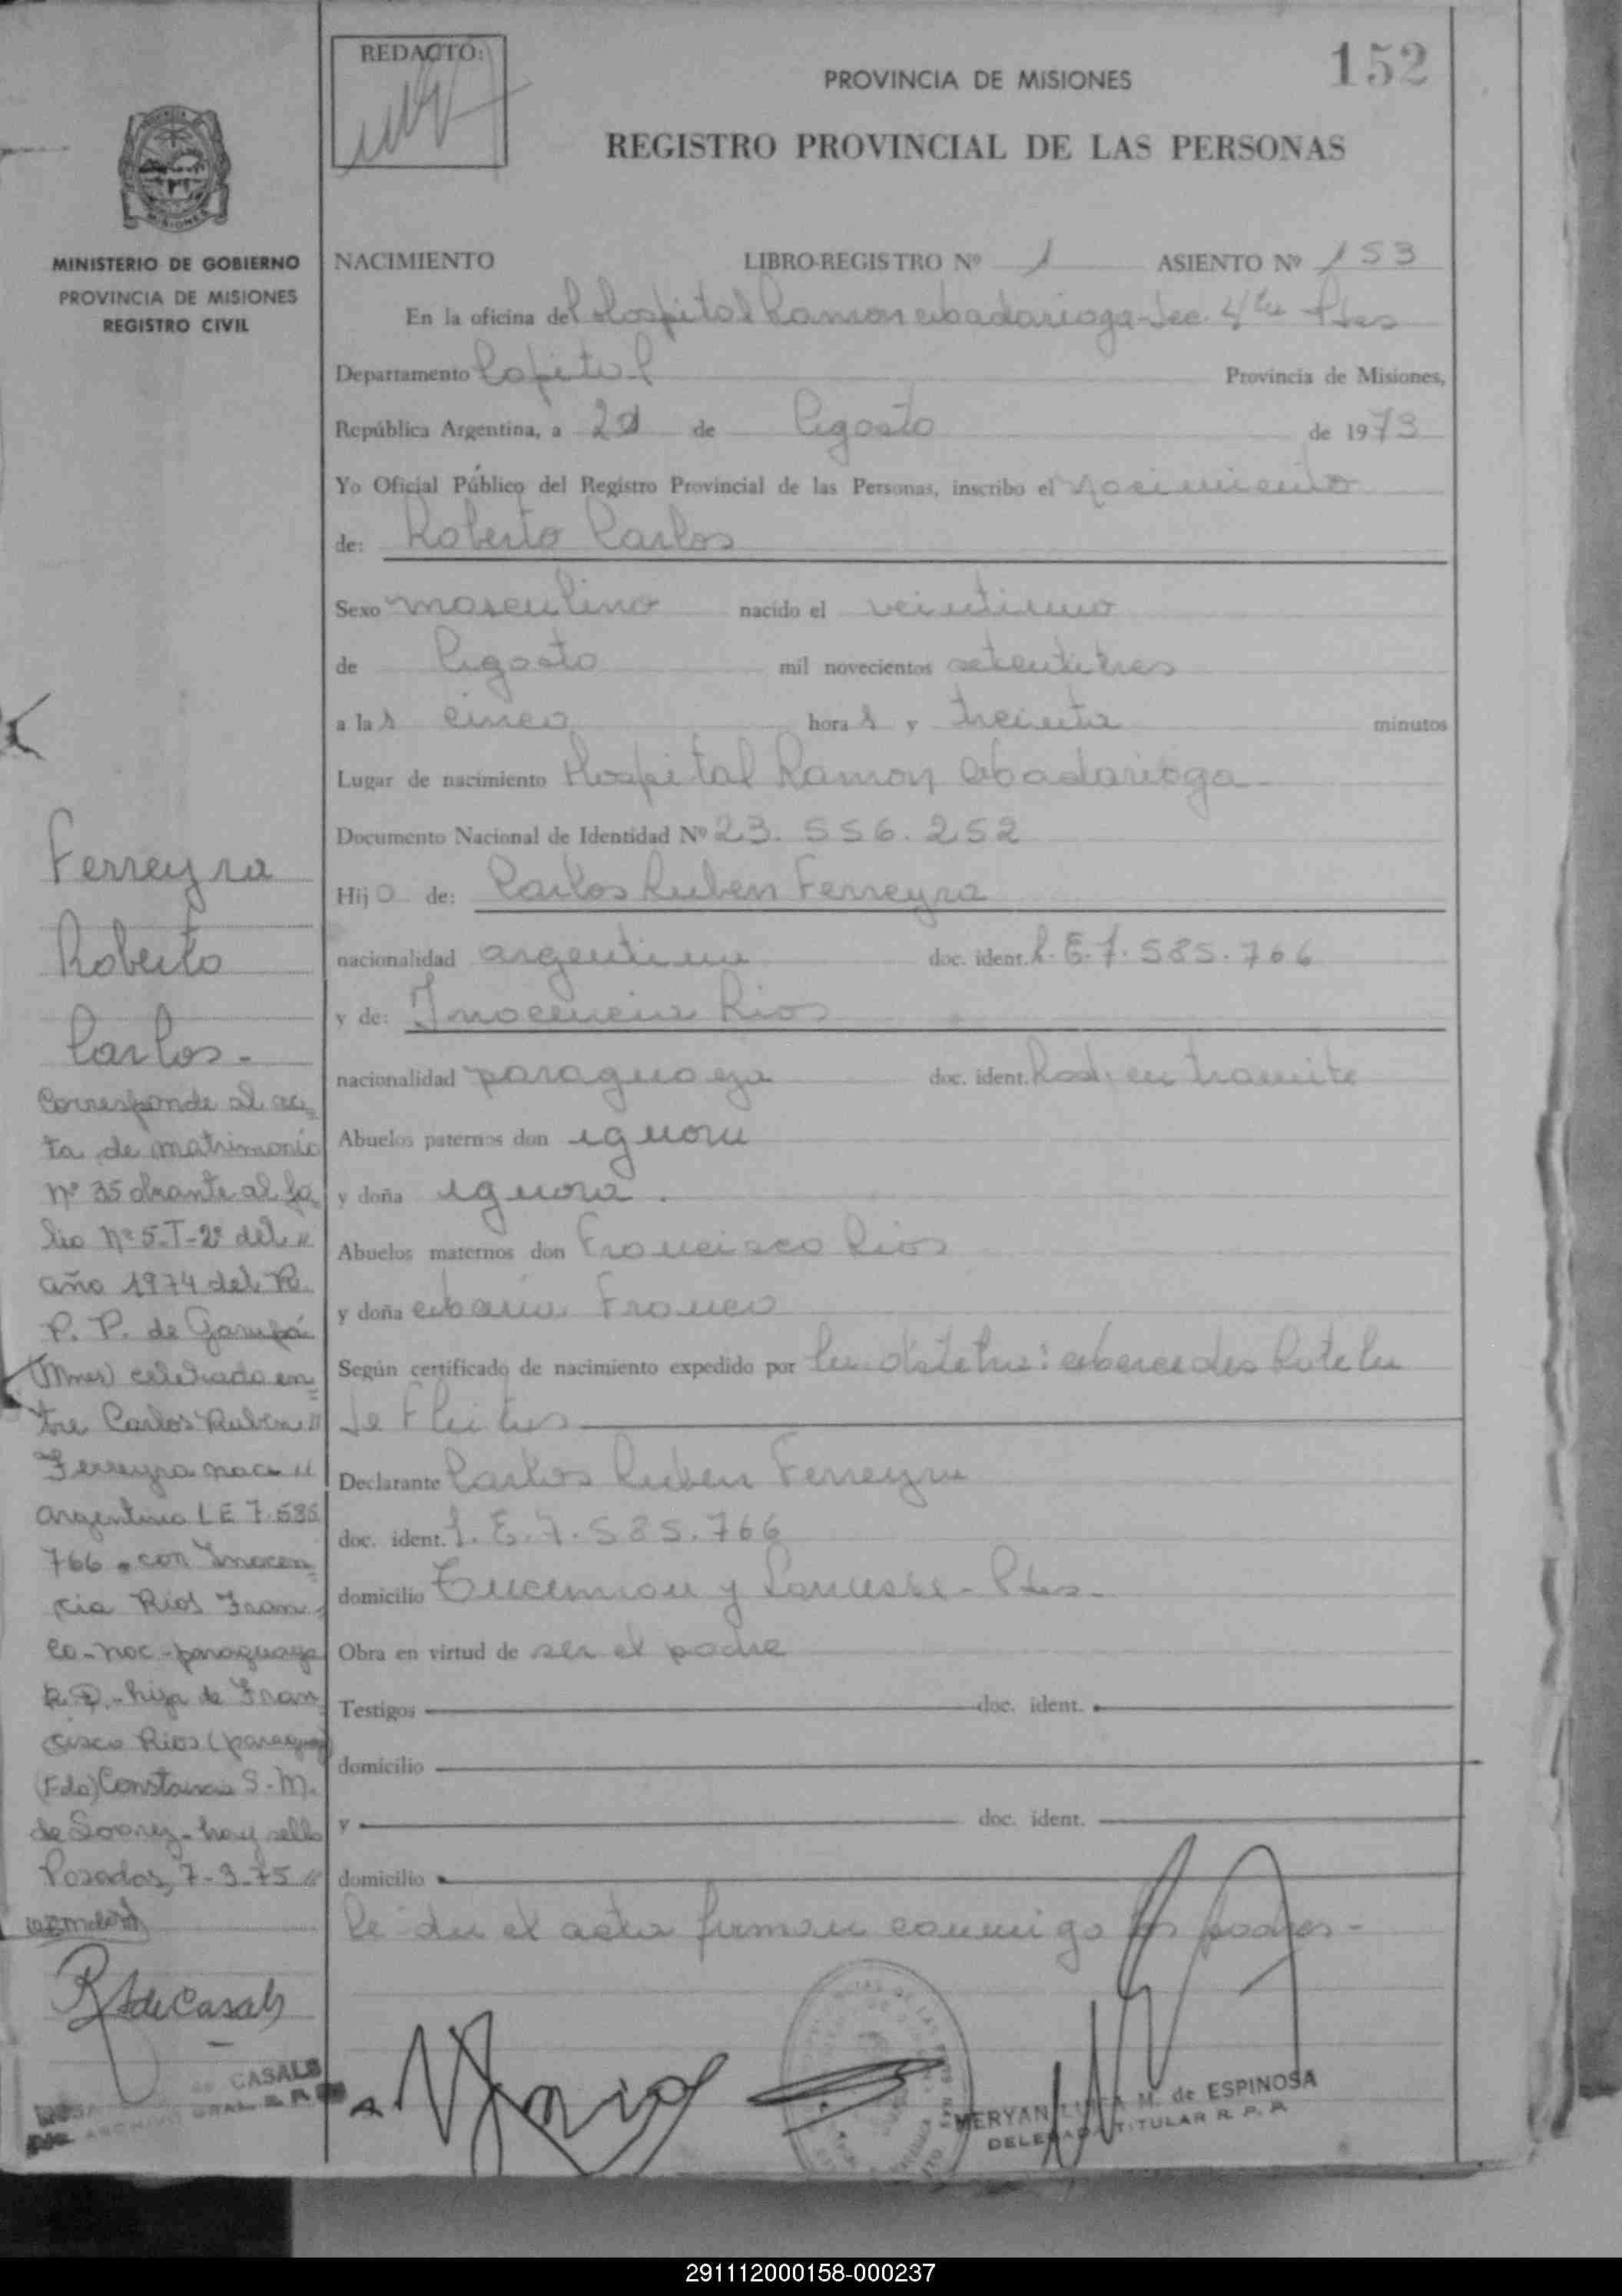 REDACTO:
PROVINCIA DE MISIONES
152
REGISTRO PROVINCIAL DE LAS PERSONAS
MINISTERIO DE GOBIERNO
PROVINCIA DE MISIONES
REGISTRO CIVIL
NACIMIENTO LIBRO-REGISTRO Nº 1 ASIENTO Nº 153
En la oficina del Hospital Ramon Abadarioga-Sec. 4ta Pdas
Departamento Capital Provincia de Misiones,
República Argentina, a 21 de Agosto de 1973
Yo Oficial Público del Registro Provincial de las Personas, inscribo el nacimiento
de: Roberto Carlos
Sexo masculino nacido el veintiuno
de Agosto mil novecientos setentitres
a las cinco horas y treinta minutos
Lugar de nacimiento Hospital Ramon Abadarioga
Documento Nacional de Identidad Nº 23.556.252
Hijo de: Carlos Ruben Ferreyra
nacionalidad argentina doc. ident. L.E.7.585.766
y de: Inocencia Rios
nacionalidad paraguaya doc. ident. Rad. en tramite
Abuelos paternos don ignora
y doña ignora.
Abuelos maternos don Francisco Rios
y doña Franco
Según certificado de nacimiento expedido por la obstetra: Mercedes Rotela
de Fleitas
Declarante Carlos Ruben Ferreyra
doc. ident. L.E.7.585.766
domicilio Tucuman y Lanusse - Pdas-
Obra en virtud de ser el padre
Testigos doc. ident.
domicilio
y doc. ident.
domicilio
Leida el acta firman conmigo los padres-
Ferreyra
Roberto
Carlos-
Corresponde al ac=
ta de matrimonio
nº 35 obrante al fo
lio Nº 5-T-2º del "
año 1974 del R.
P. P. de Garupá
(Mnes) celebrado en=
tre Carlos Ruben "
Ferreyra nac "
argentino LE 7.585
766 - con Inocen=
cia Rios Fran=
co - nac - paraguaya
R.D. - hija de Fran
cisco Rios (paraguay)
(Fdo) Constancia S. M.
de Soarez - hay sello
Posadas, 7-3-75 "
de Casals
de CASALS
ARCHIVO GRAL R. P.
MERYAN M. de ESPINOSA
DELEGADA TITULAR R. P. P.
291112000158-000237